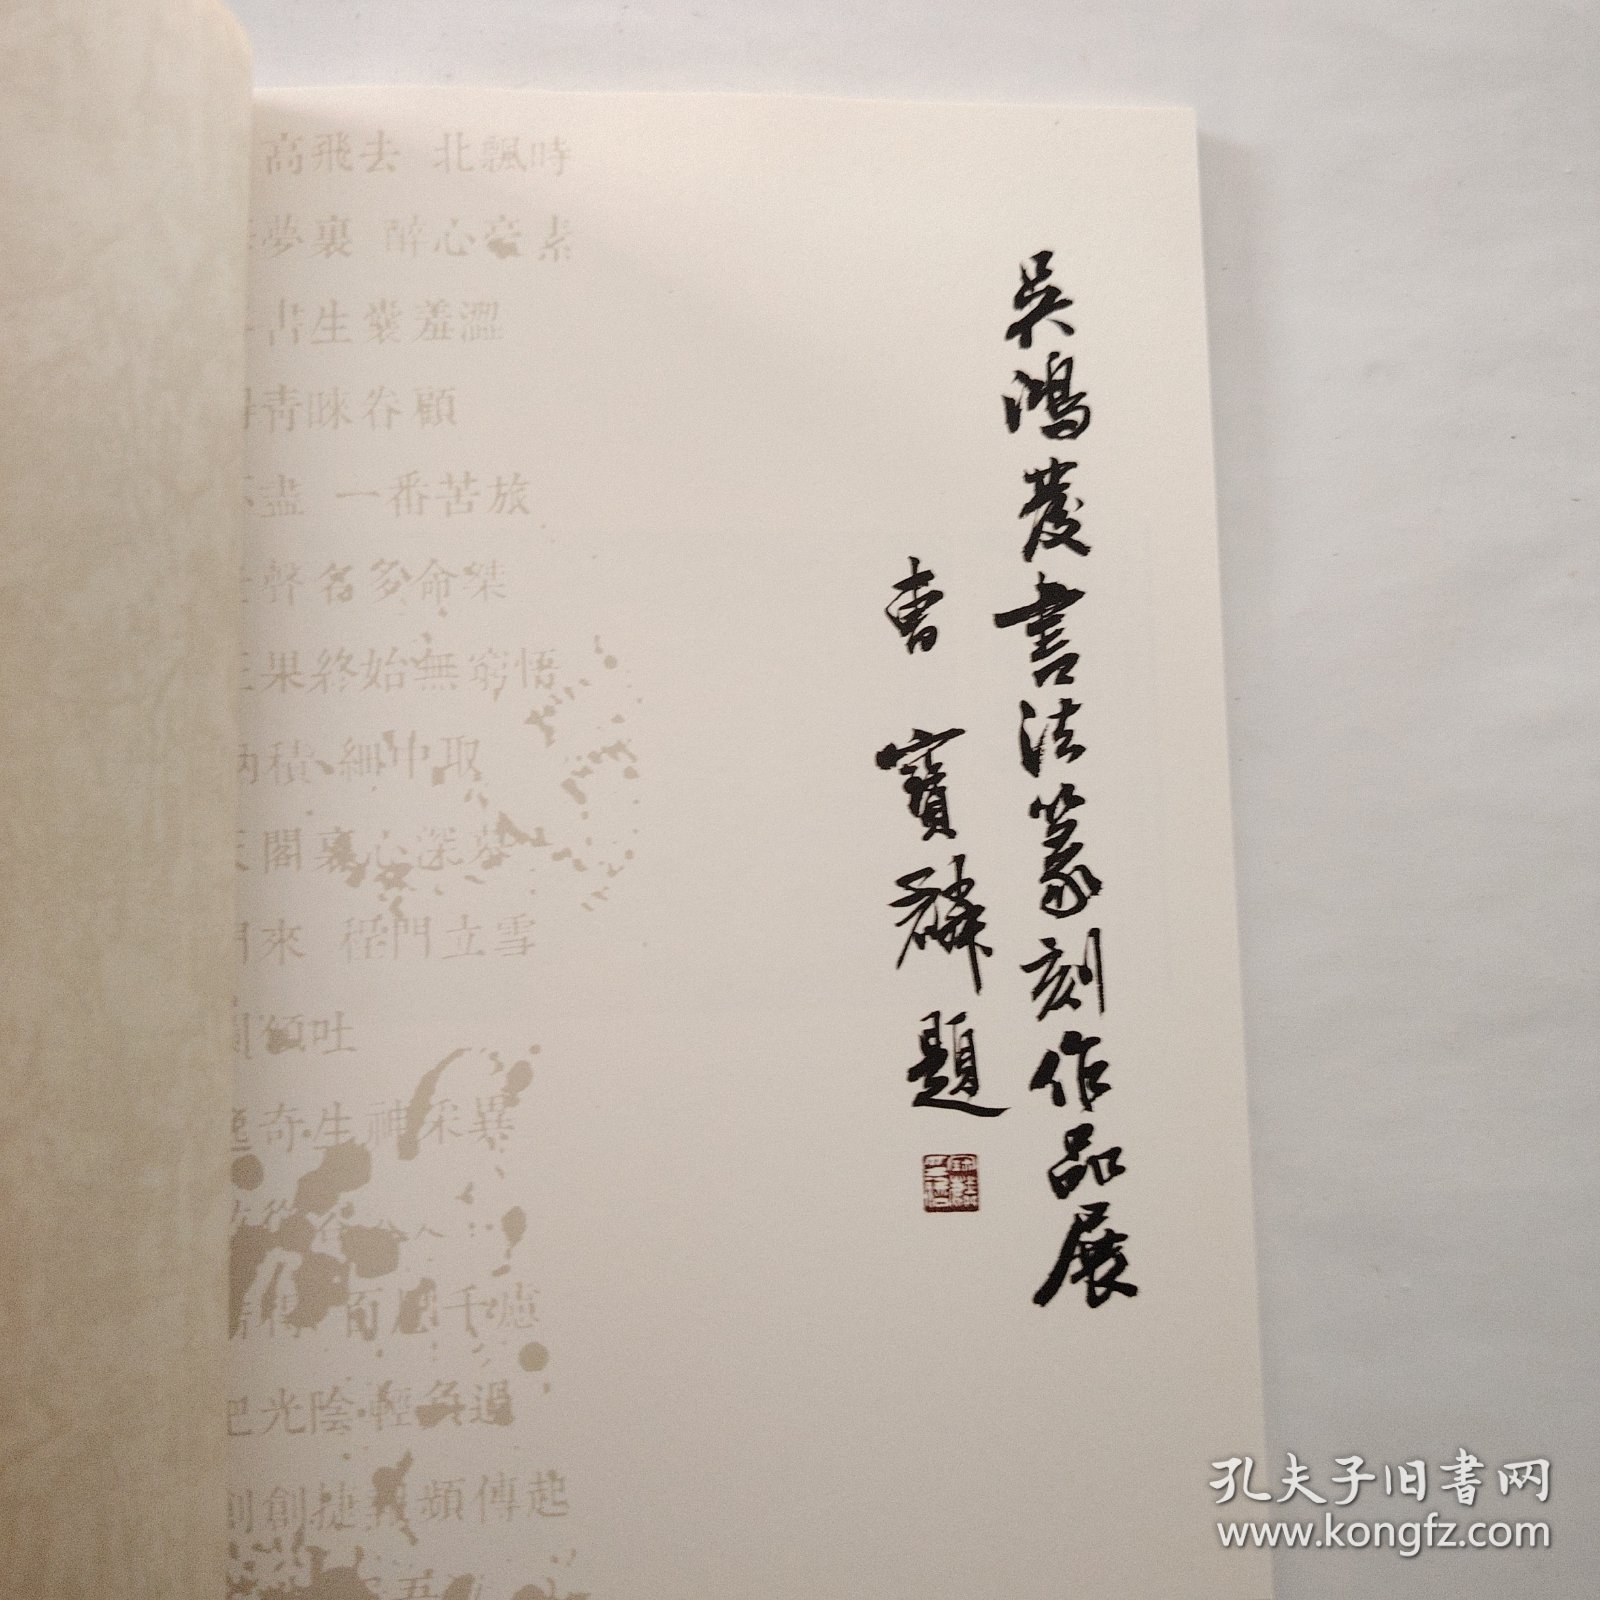 吳鴻發書法篆刻作品展
曹寶麟題
高飛去 北飄時
夢裏 醉心豪素
書生囊羞澀
青睞眷顧
盡 一番苦旅
聲名多命桀
果終始無窮悟
積 細中取
閣裏心深慕
來 程門立雪
頷吐
奇生神采異
百思千慮
光陰輕負過
創捷頻傳起
五
孔夫子旧书网
www.kongfz.com